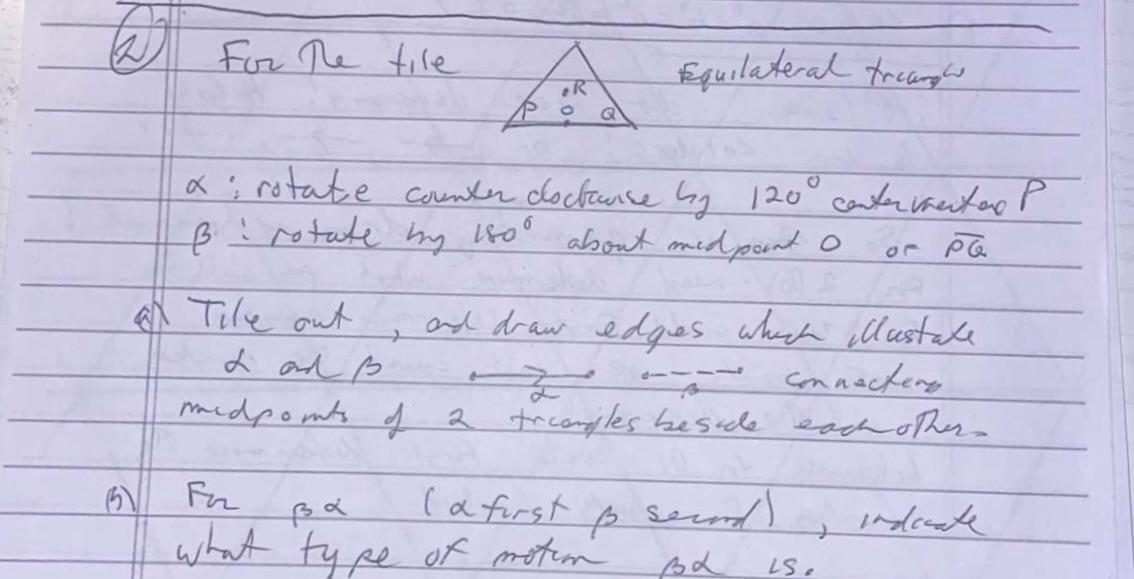 2) For The tile Equilateral triangle
R
P O Q
α : rotate counter clockwise by 120° center vertex P
β : rotate by 180° about midpoint O of P̅Q̅
a) Tile out, and draw edges which illustate
α and β α β connecting
midpoints of 2 triangles beside each other.
B) For βα (α first β second), indicate
what type of motion βα is.